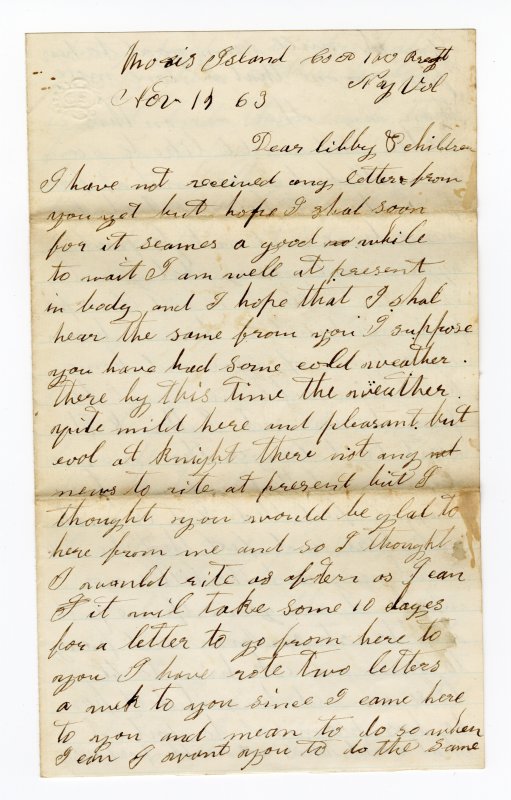 Moris Island Co D 100 Regt
Nov 19 63 N Y Vol
Dear libby & children
I have not received any letters from
you yet but hope I shal soon
for it seames a good while
to wait I am well at present
in body and I hope that I shal
hear the same from you I suppose
you have had some cold weather.
there by this time the weather.
quite mild here and pleasant. but
cool at knight there nist any
news to rite at present but I
thought you would be glad to
here from me and so I thought
I would rite as oftern as I can
I it wil take some 10 dayes
for a letter to go from here to
you I have rote two letters
a wek to you since I came here
to you and mean to do so when
I can I want you to do the same